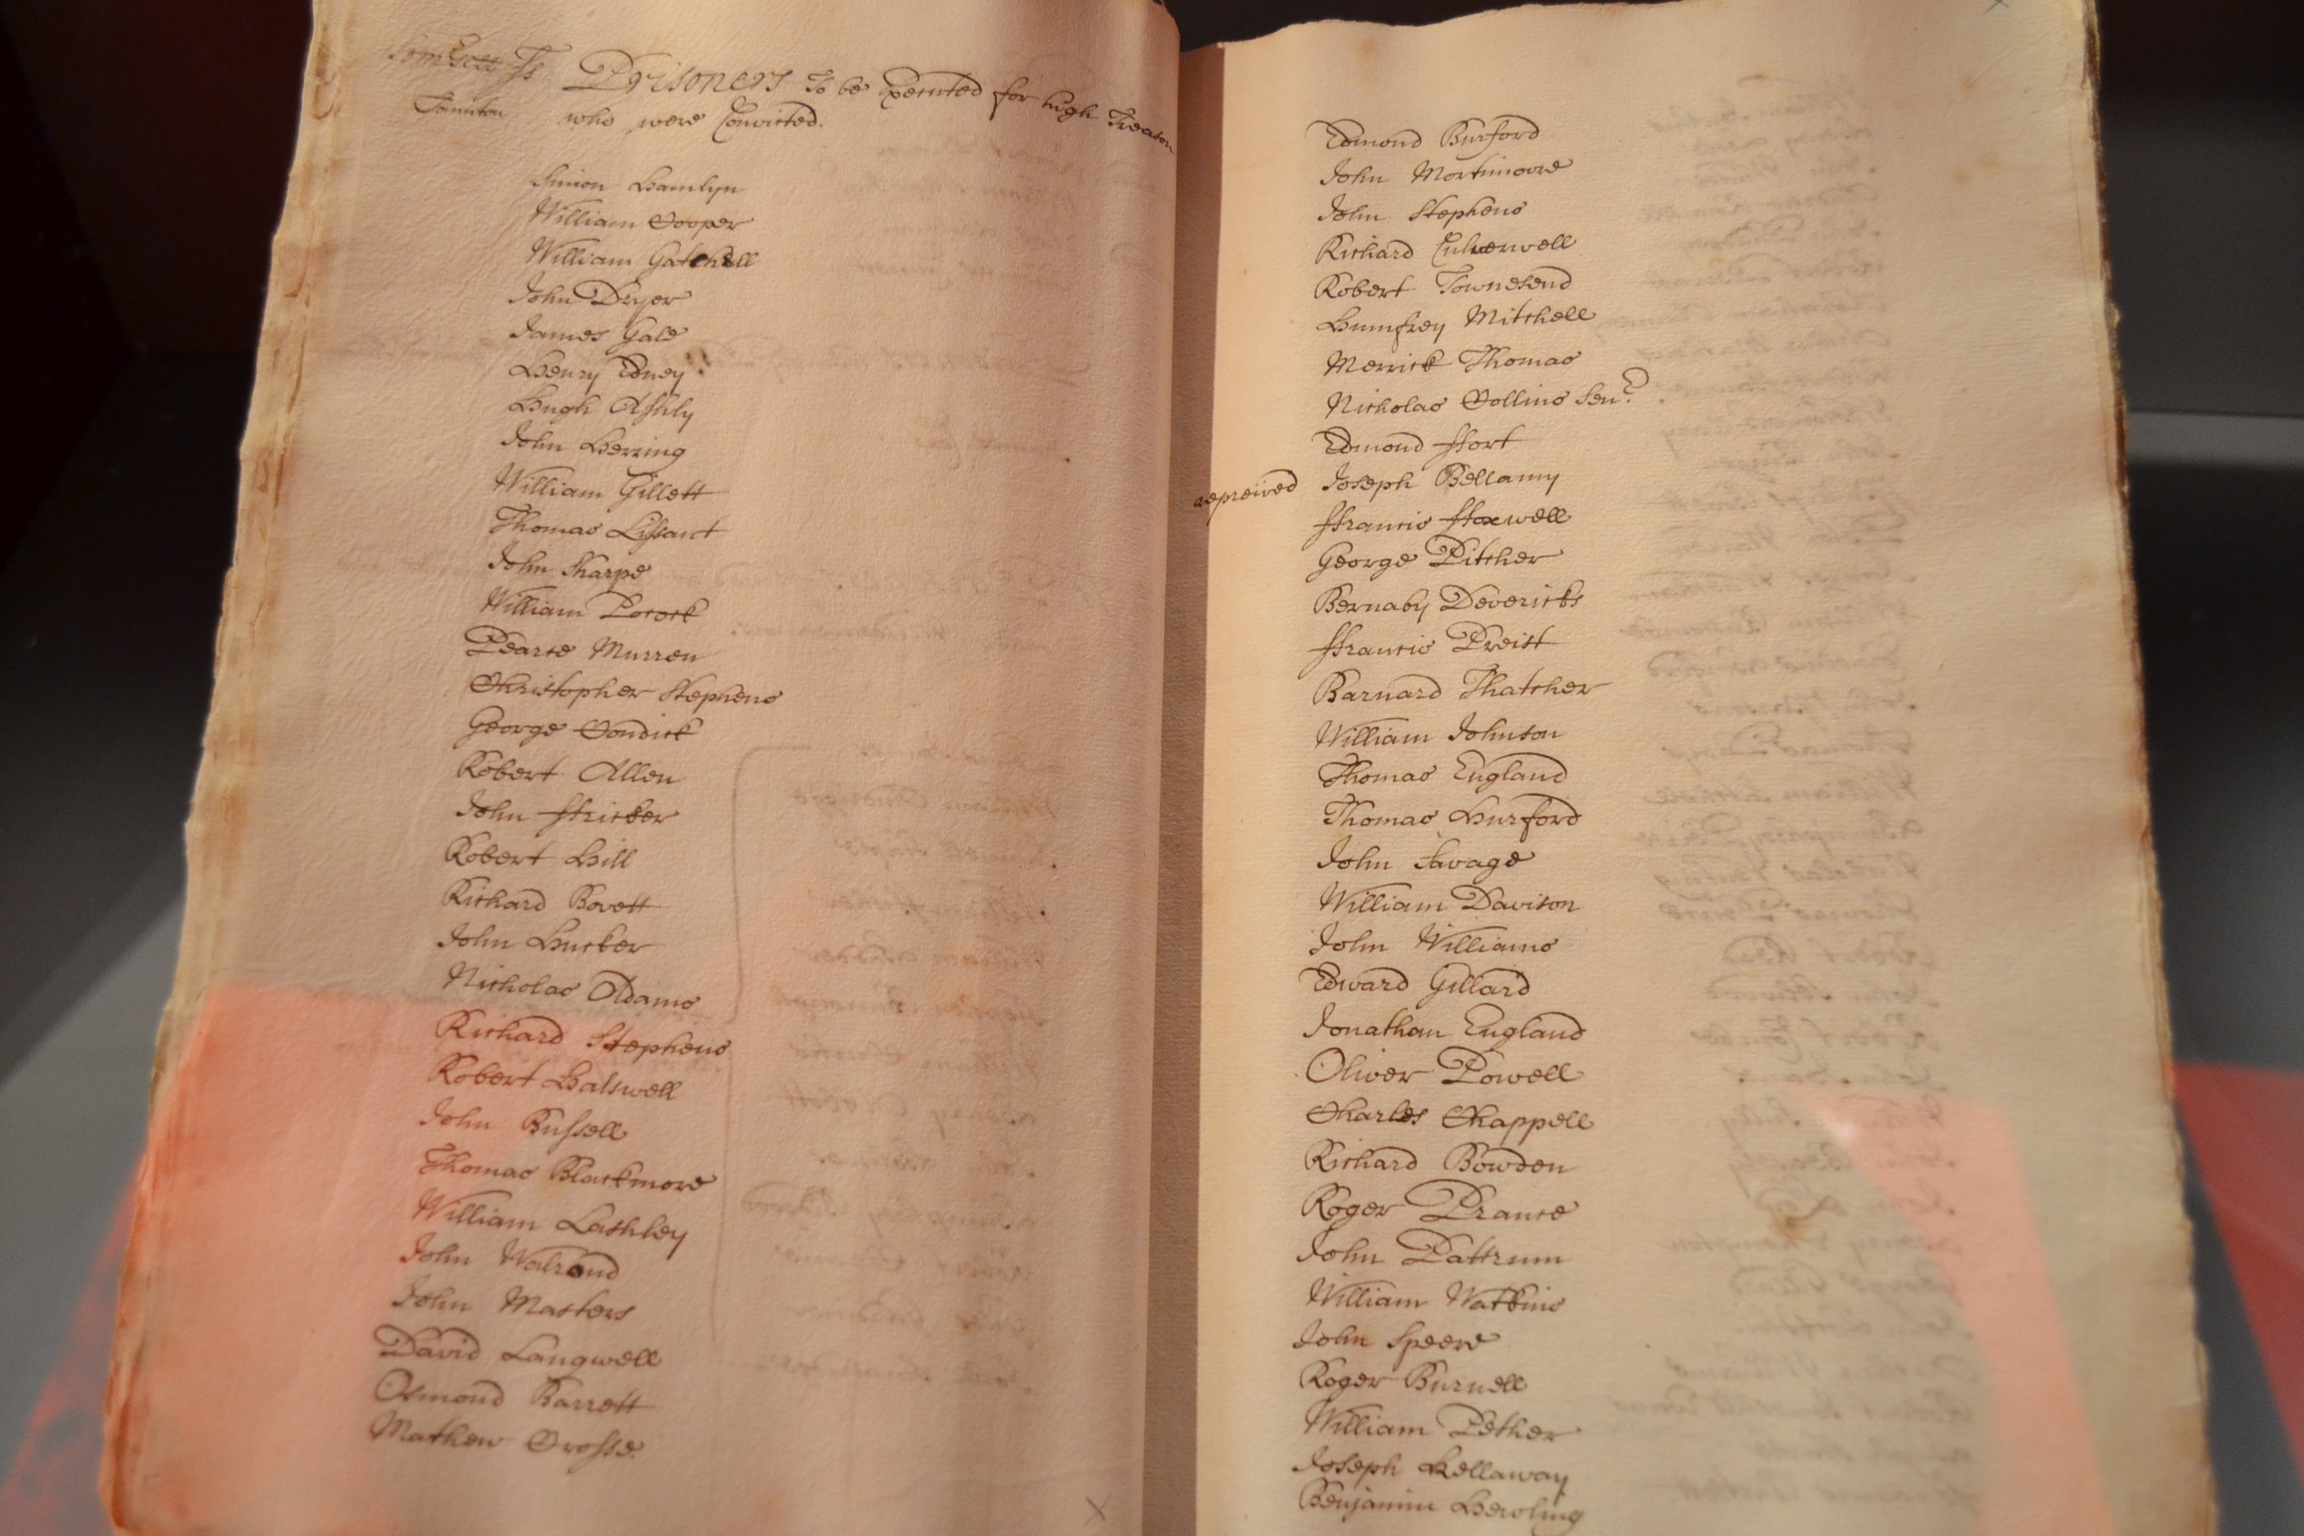 Somsett Ss Prisoners To be Executed for high Treason
Taunton who were Convicted.
Simon Hamlyn
William Cooper
William Gatchell
John Dryer
James Gale
Henry Edney
Hugh Ashly
John Herring
William Gillett
Thomas Lissant
John Sharpe
William Pocock
Pearce Murren
Christopher Stephens
George Condick
Robert Allen
John ffricker
Robert Hill
Richard Bovett
John Hucker
Nicholas Adams
Richard Stephens
Robert Halswell
John Bussell
Thomas Blackmore
William Lashley
John Walrond
John Masters
David Langwell
Osmond Barrett
Mathew Crosse
Edmond Burford
John Mortimoore
John Stephens
Richard Culverwell
Robert Townesend
Humfrey Mitchell
Merrick Thomas
Nicholas Collins Senr.
Edmond ffort
repreived Joseph Bellamy
ffrancis ffoxwell
George Pitcher
Bernaby Devericks
ffrancis Preist
Barnard Thatcher
William Johnson
Thomas England
Thomas Hurford
John Savage
William Davison
John Williams
Edward Gillard
Jonathan England
Oliver Powell
Charles Chappell
Richard Bowden
Roger Prance
John Pattrum
William Watkins
John Speere
Roger Burnell
William Pether
Joseph Kellaway
Benjamin Hewling